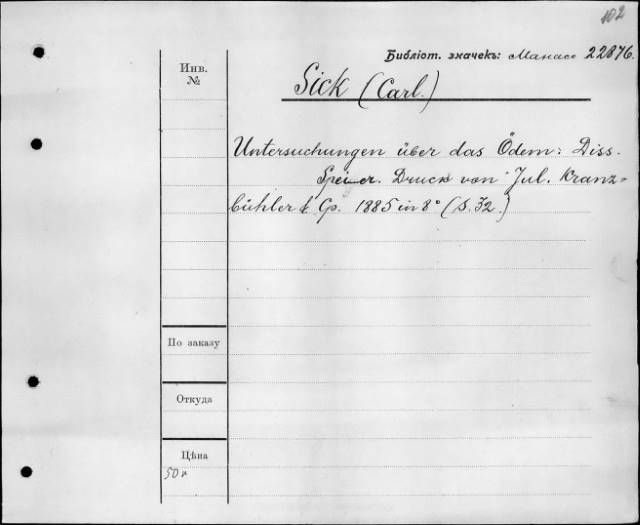 102
Библіот. значекъ: Манасс 22876.
Инв.
№
Sick (Carl.)
Untersuchungen über das Ödem: Diss.
Speier. Druck von Jul. Kranz-
bühler & Cp. 1885 in 8° (S. 32.)
По заказу
Откуда
Цѣна
50